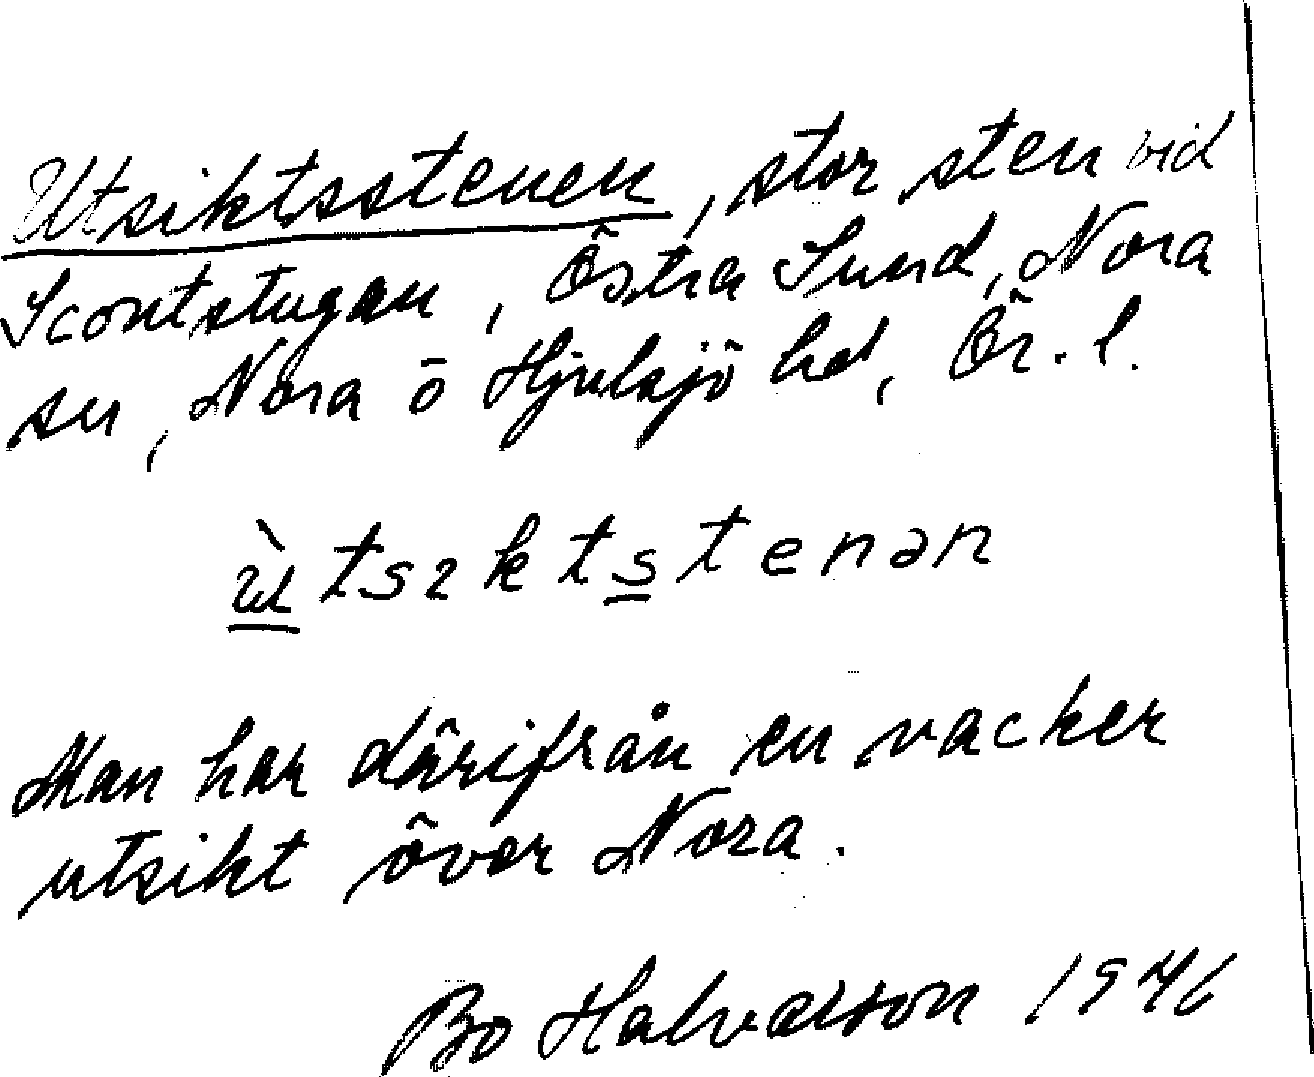 Utsiktsstenen, stor sten vid
Scoutstugan, Östra Sund, Nora
sn, Nora o Hjulsjö hd, Ör. l.
ùtsıktstenən
Man har därifrån en vacker
utsikt över Nora.
Bo Halvarson 1946